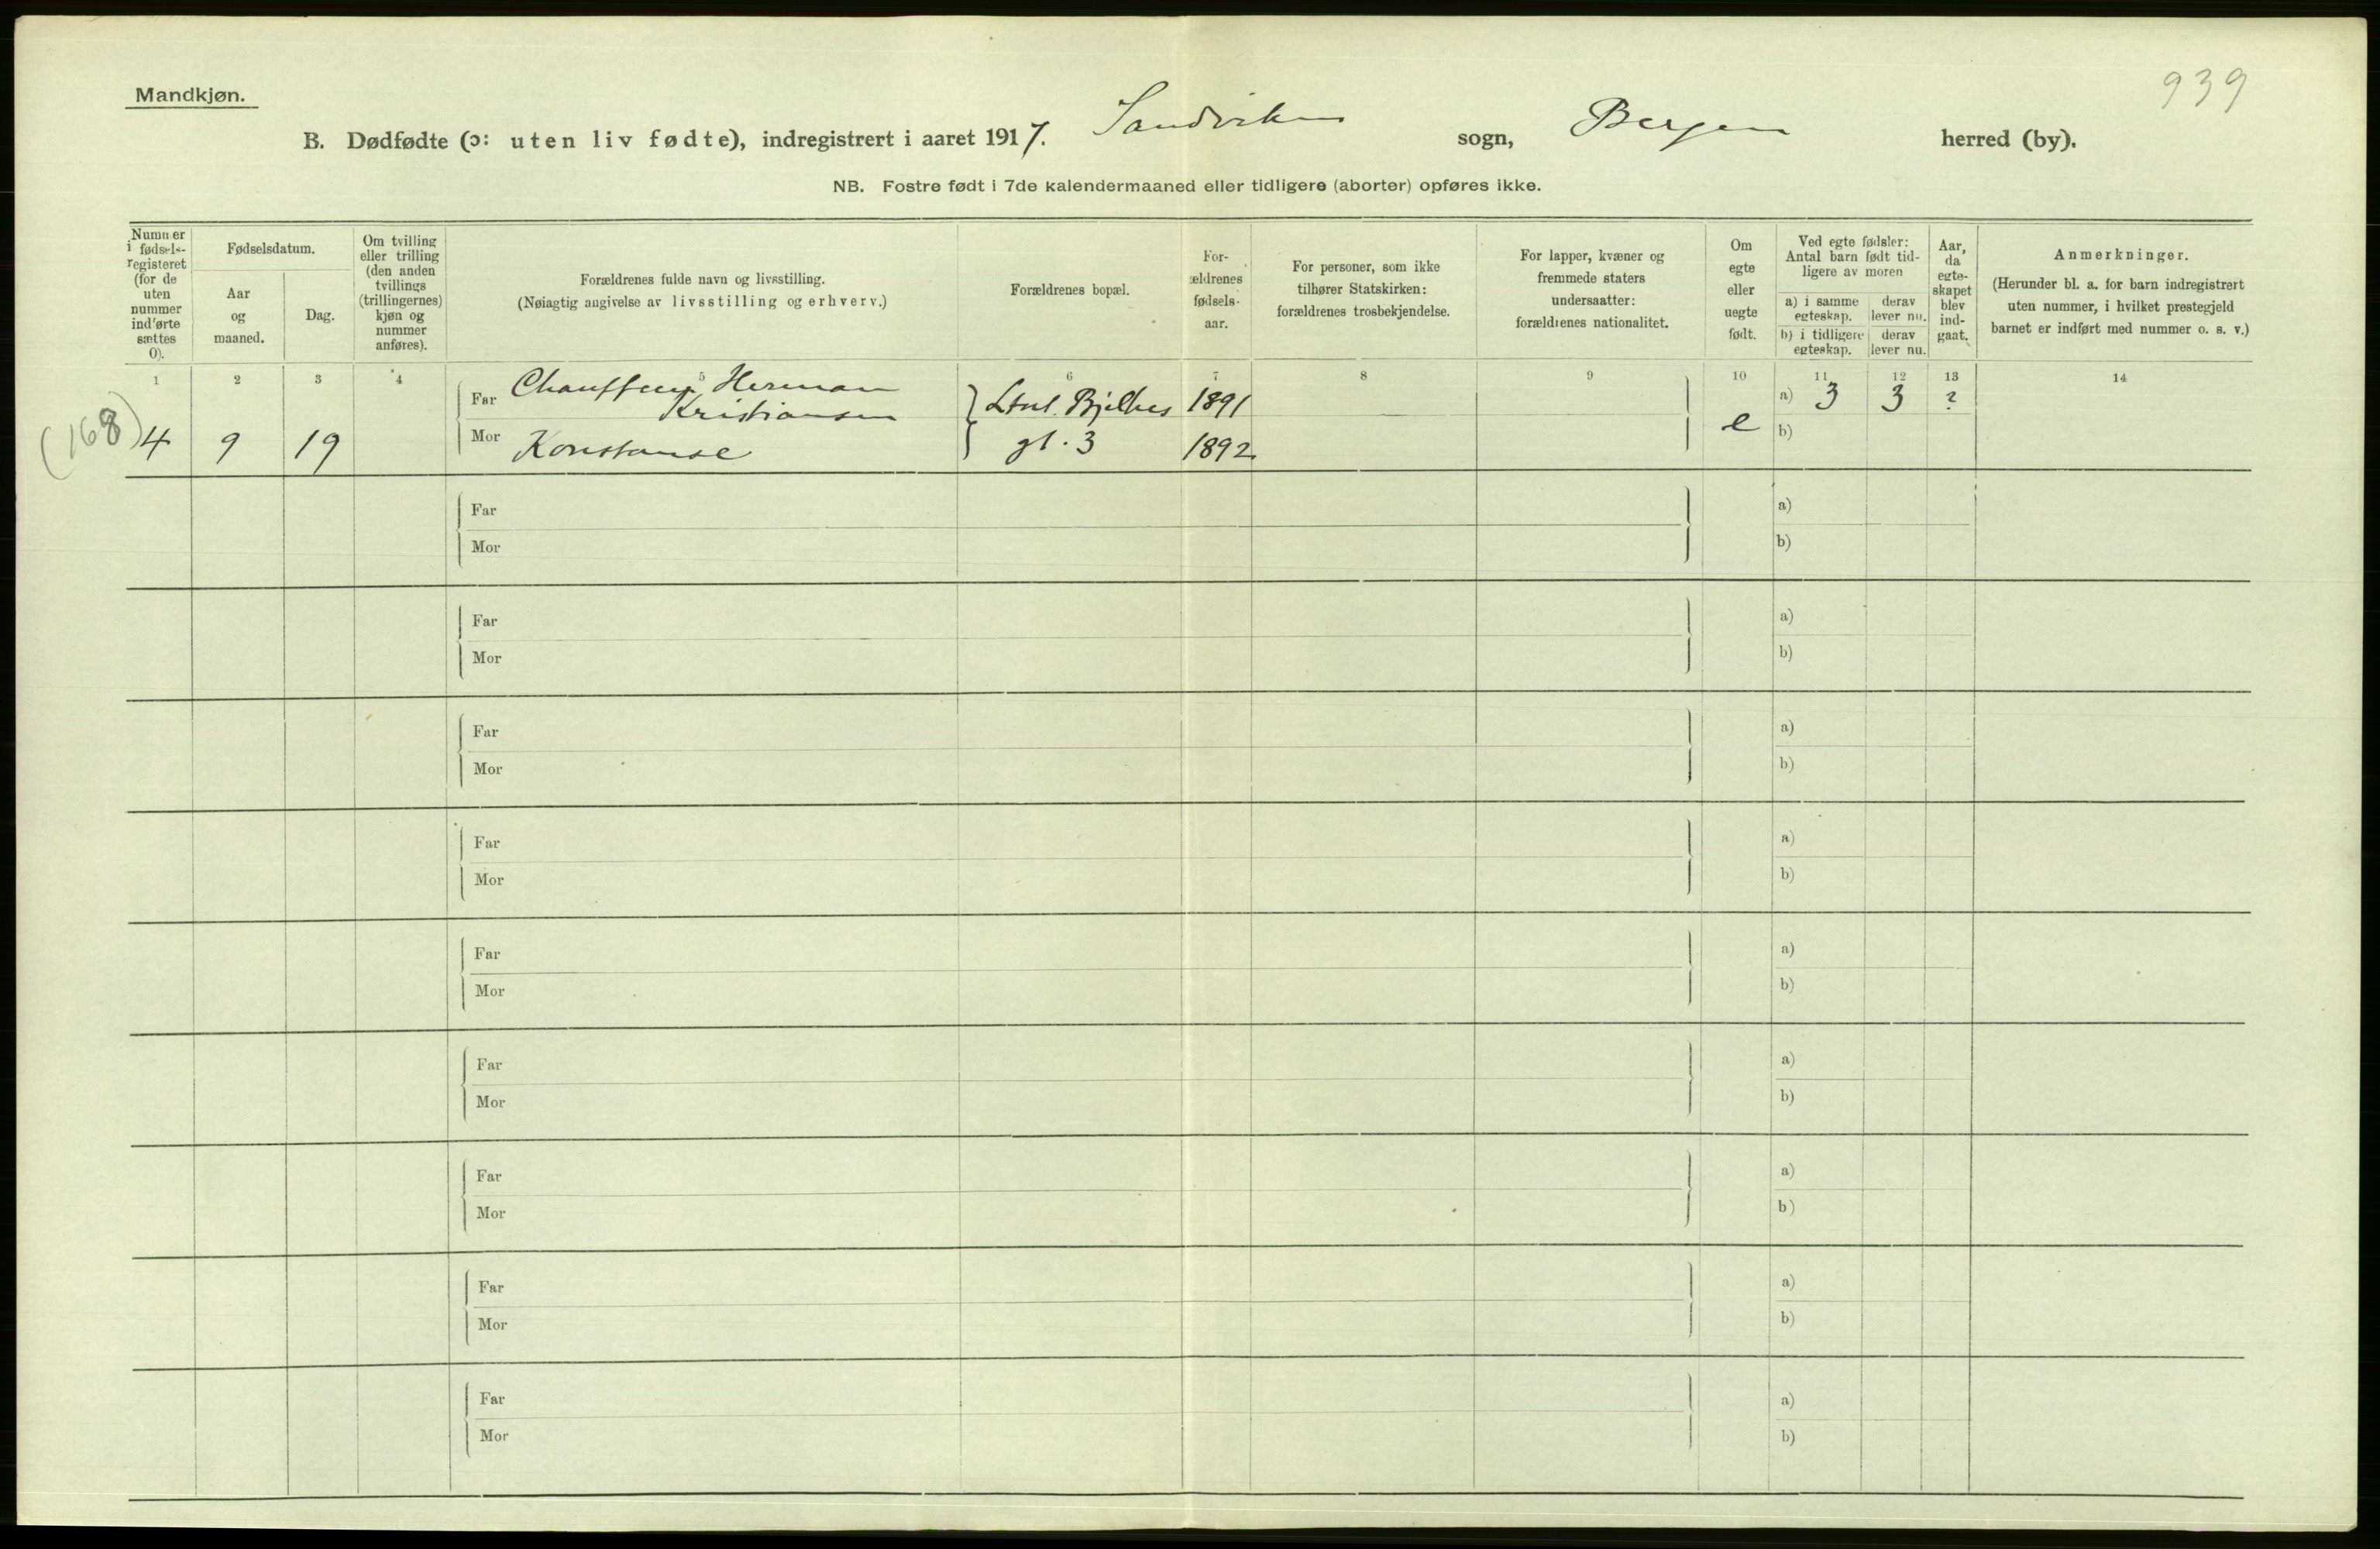 939
Mandkjøn.
B. Dødfødte (ɔ: uten liv fødte), indregistrert i aaret 1917. Sandviken sogn, Bergen herred (by).
NB. Fostre født i 7de kalendermaaned eller tidligere (aborter) opføres ikke.
Nummer i fødsels-registeret (for de uten nummer indførte sættes 0).
Fødselsdatum.
Aar og maaned.
Dag.
Om tvilling eller trilling (den anden tvillings (trillingernes) kjøn og nummer anføres).
Forældrenes fulde navn og livsstilling.
(Nøiagtig angivelse av livsstilling og erhverv.)
Forældrenes bopæl.
For-ældrenes fødsels-aar.
For personer, som ikke tilhører Statskirken: forældrenes trosbekjendelse.
For lapper, kvæner og fremmede staters undersaatter: forældrenes nationalitet.
Om egte eller uegte født.
Ved egte fødsler: Antal barn født tid-ligere av moren
a) i samme egteskap. derav lever nu.
b) i tidligere egteskap. derav lever nu.
Aar, da egte-skapet blev ind-gaat.
Anmerkninger.
(Herunder bl. a. for barn indregistrert uten nummer, i hvilket prestegjeld barnet er indført med nummer o. s. v.)
1 2 3 4 5 6 7 8 9 10 11 12 13 14
Far Chauffeur Herman Kristiansen 1891 — a) 3 3 ?
(168) 4 9 19 Mor Konstanse gt. 3 1892 e b)
Far a)
Mor b)
Far a)
Mor b)
Far a)
Mor b)
Far a)
Mor b)
Far a)
Mor b)
Far a)
Mor b)
Far a)
Mor b)
Far a)
Mor b)
Far a)
Mor b)